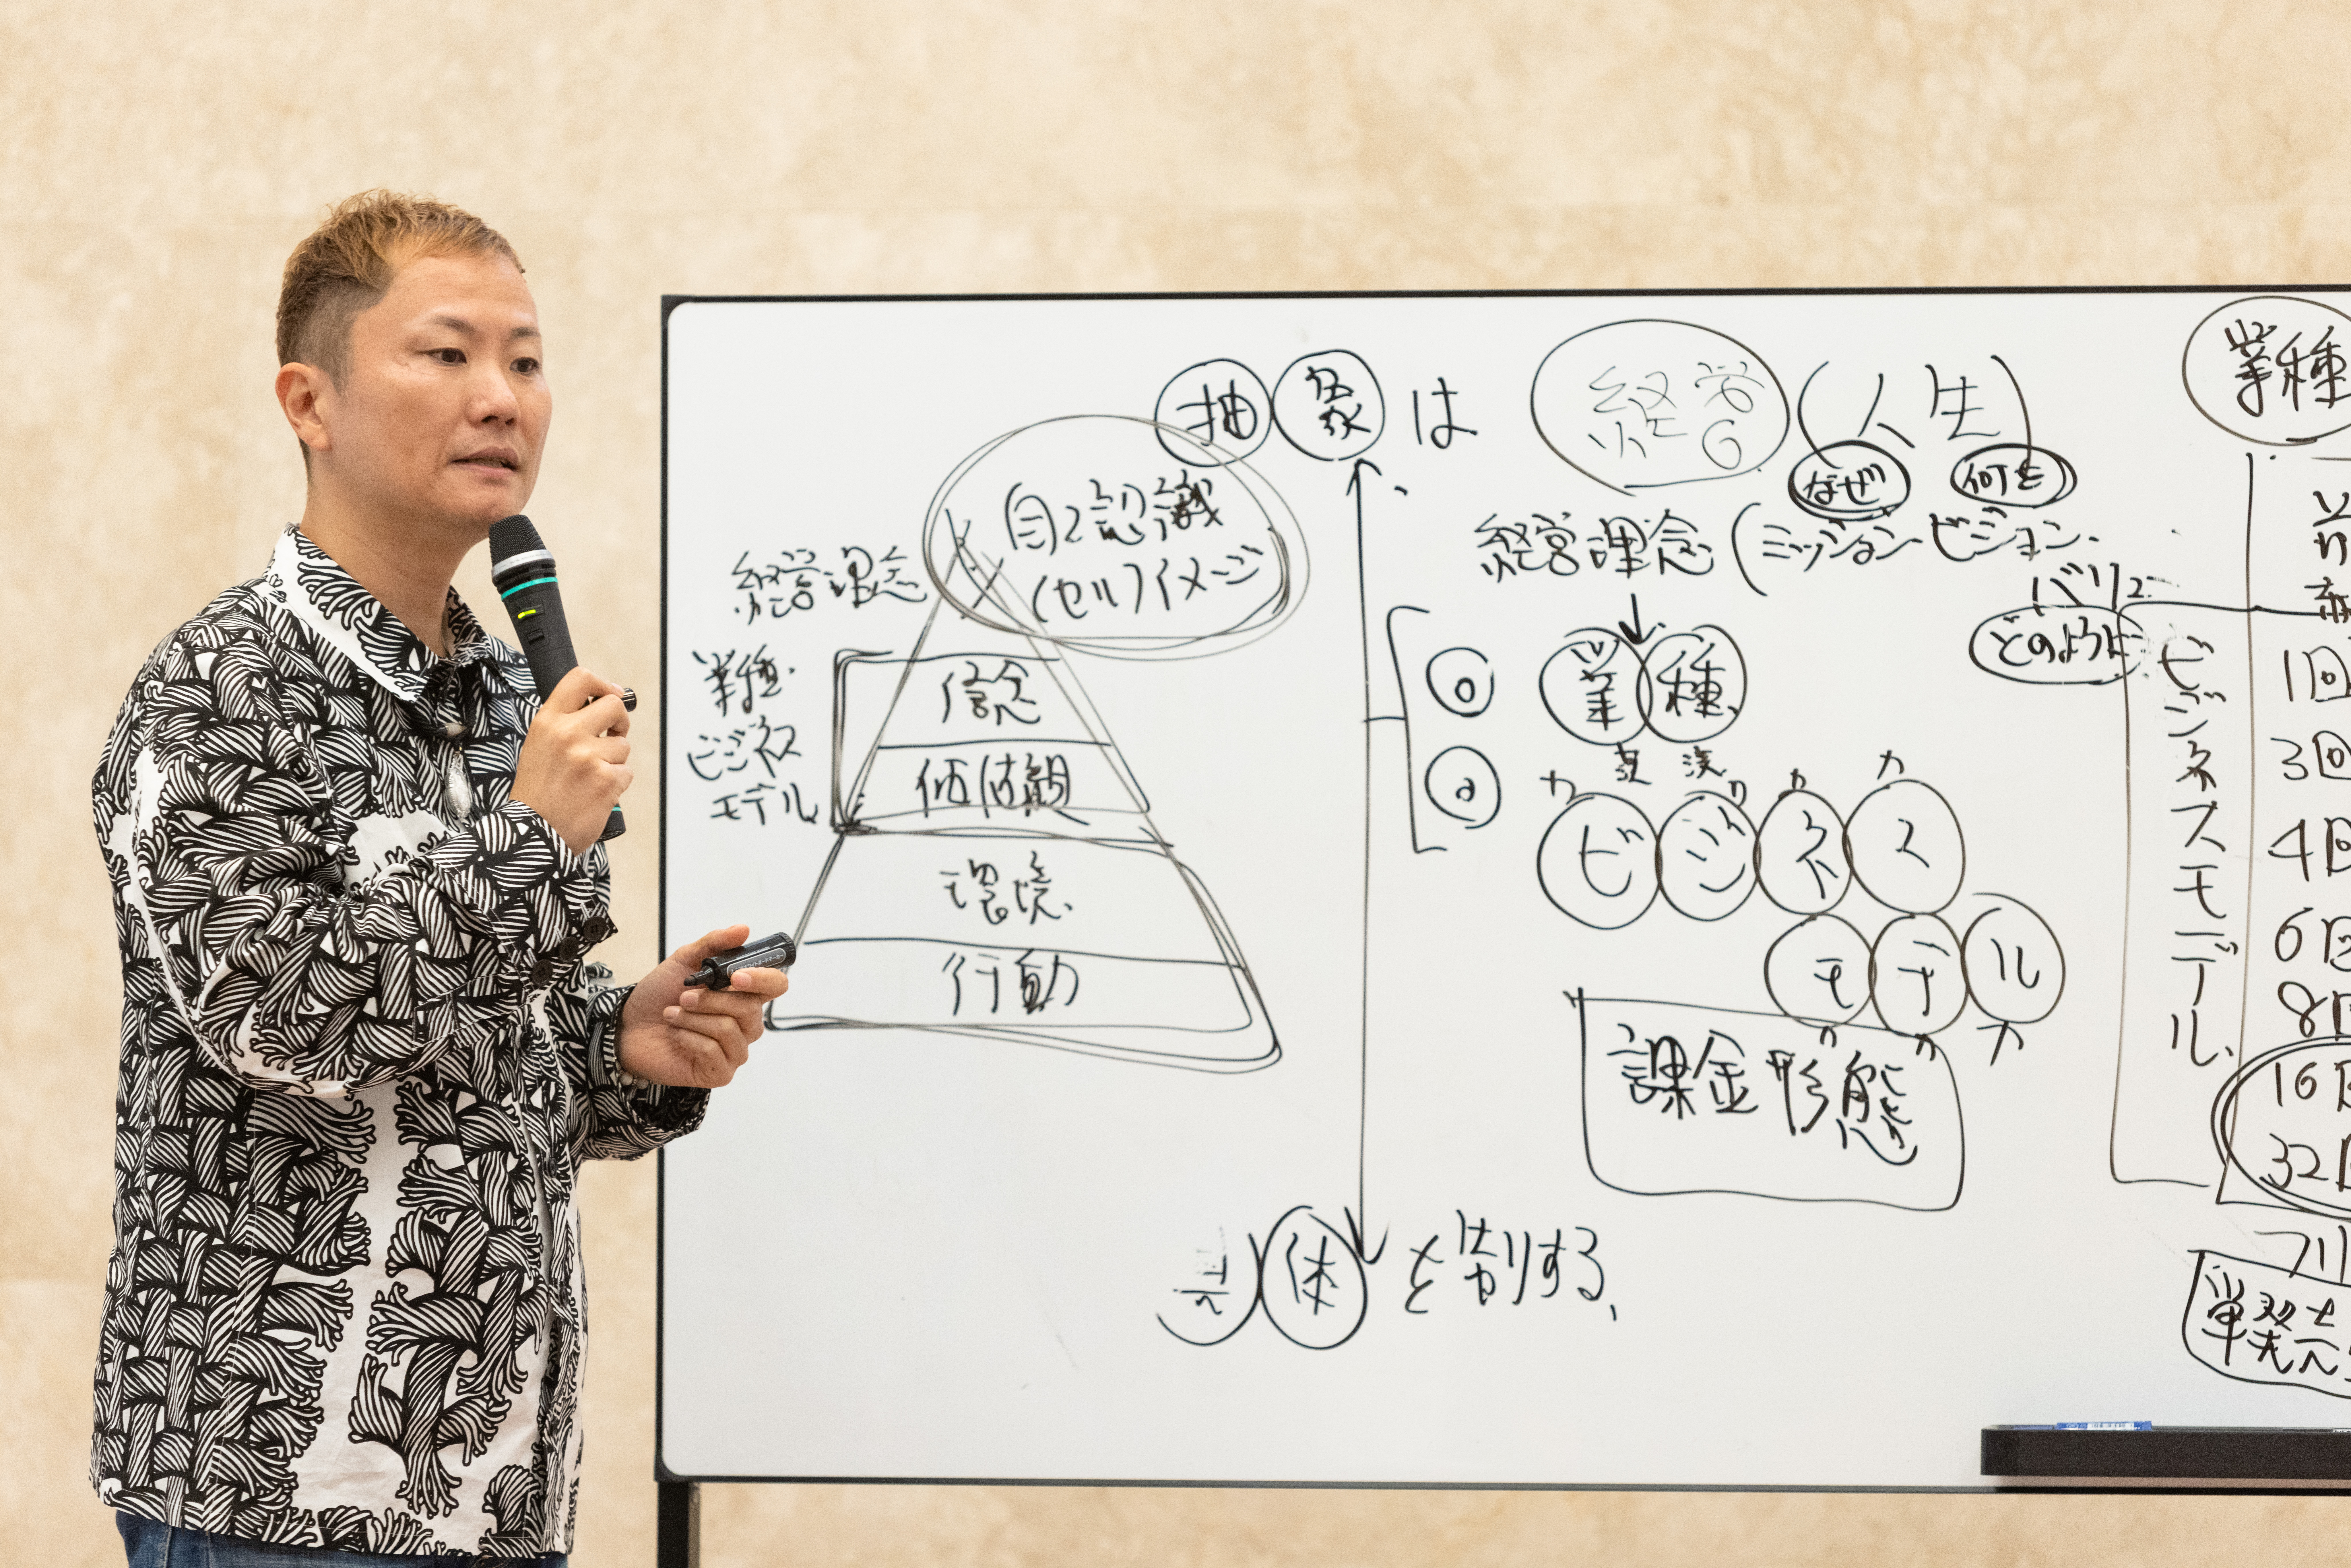 抽象は
経営
(人生)
なぜ
何を
経営理念(ミッション ビジョン
バリュ
どのように
自己認識
(セルフイメージ
経営理念
業種
ビジネス
モデル
信念
価値観
環境
行動
業種
ビジネス
モデル
課金形態
体を制する
業種
ビジネスモデル
1回
3回
4回
6回
8回
16回
32回
フリ
単発売